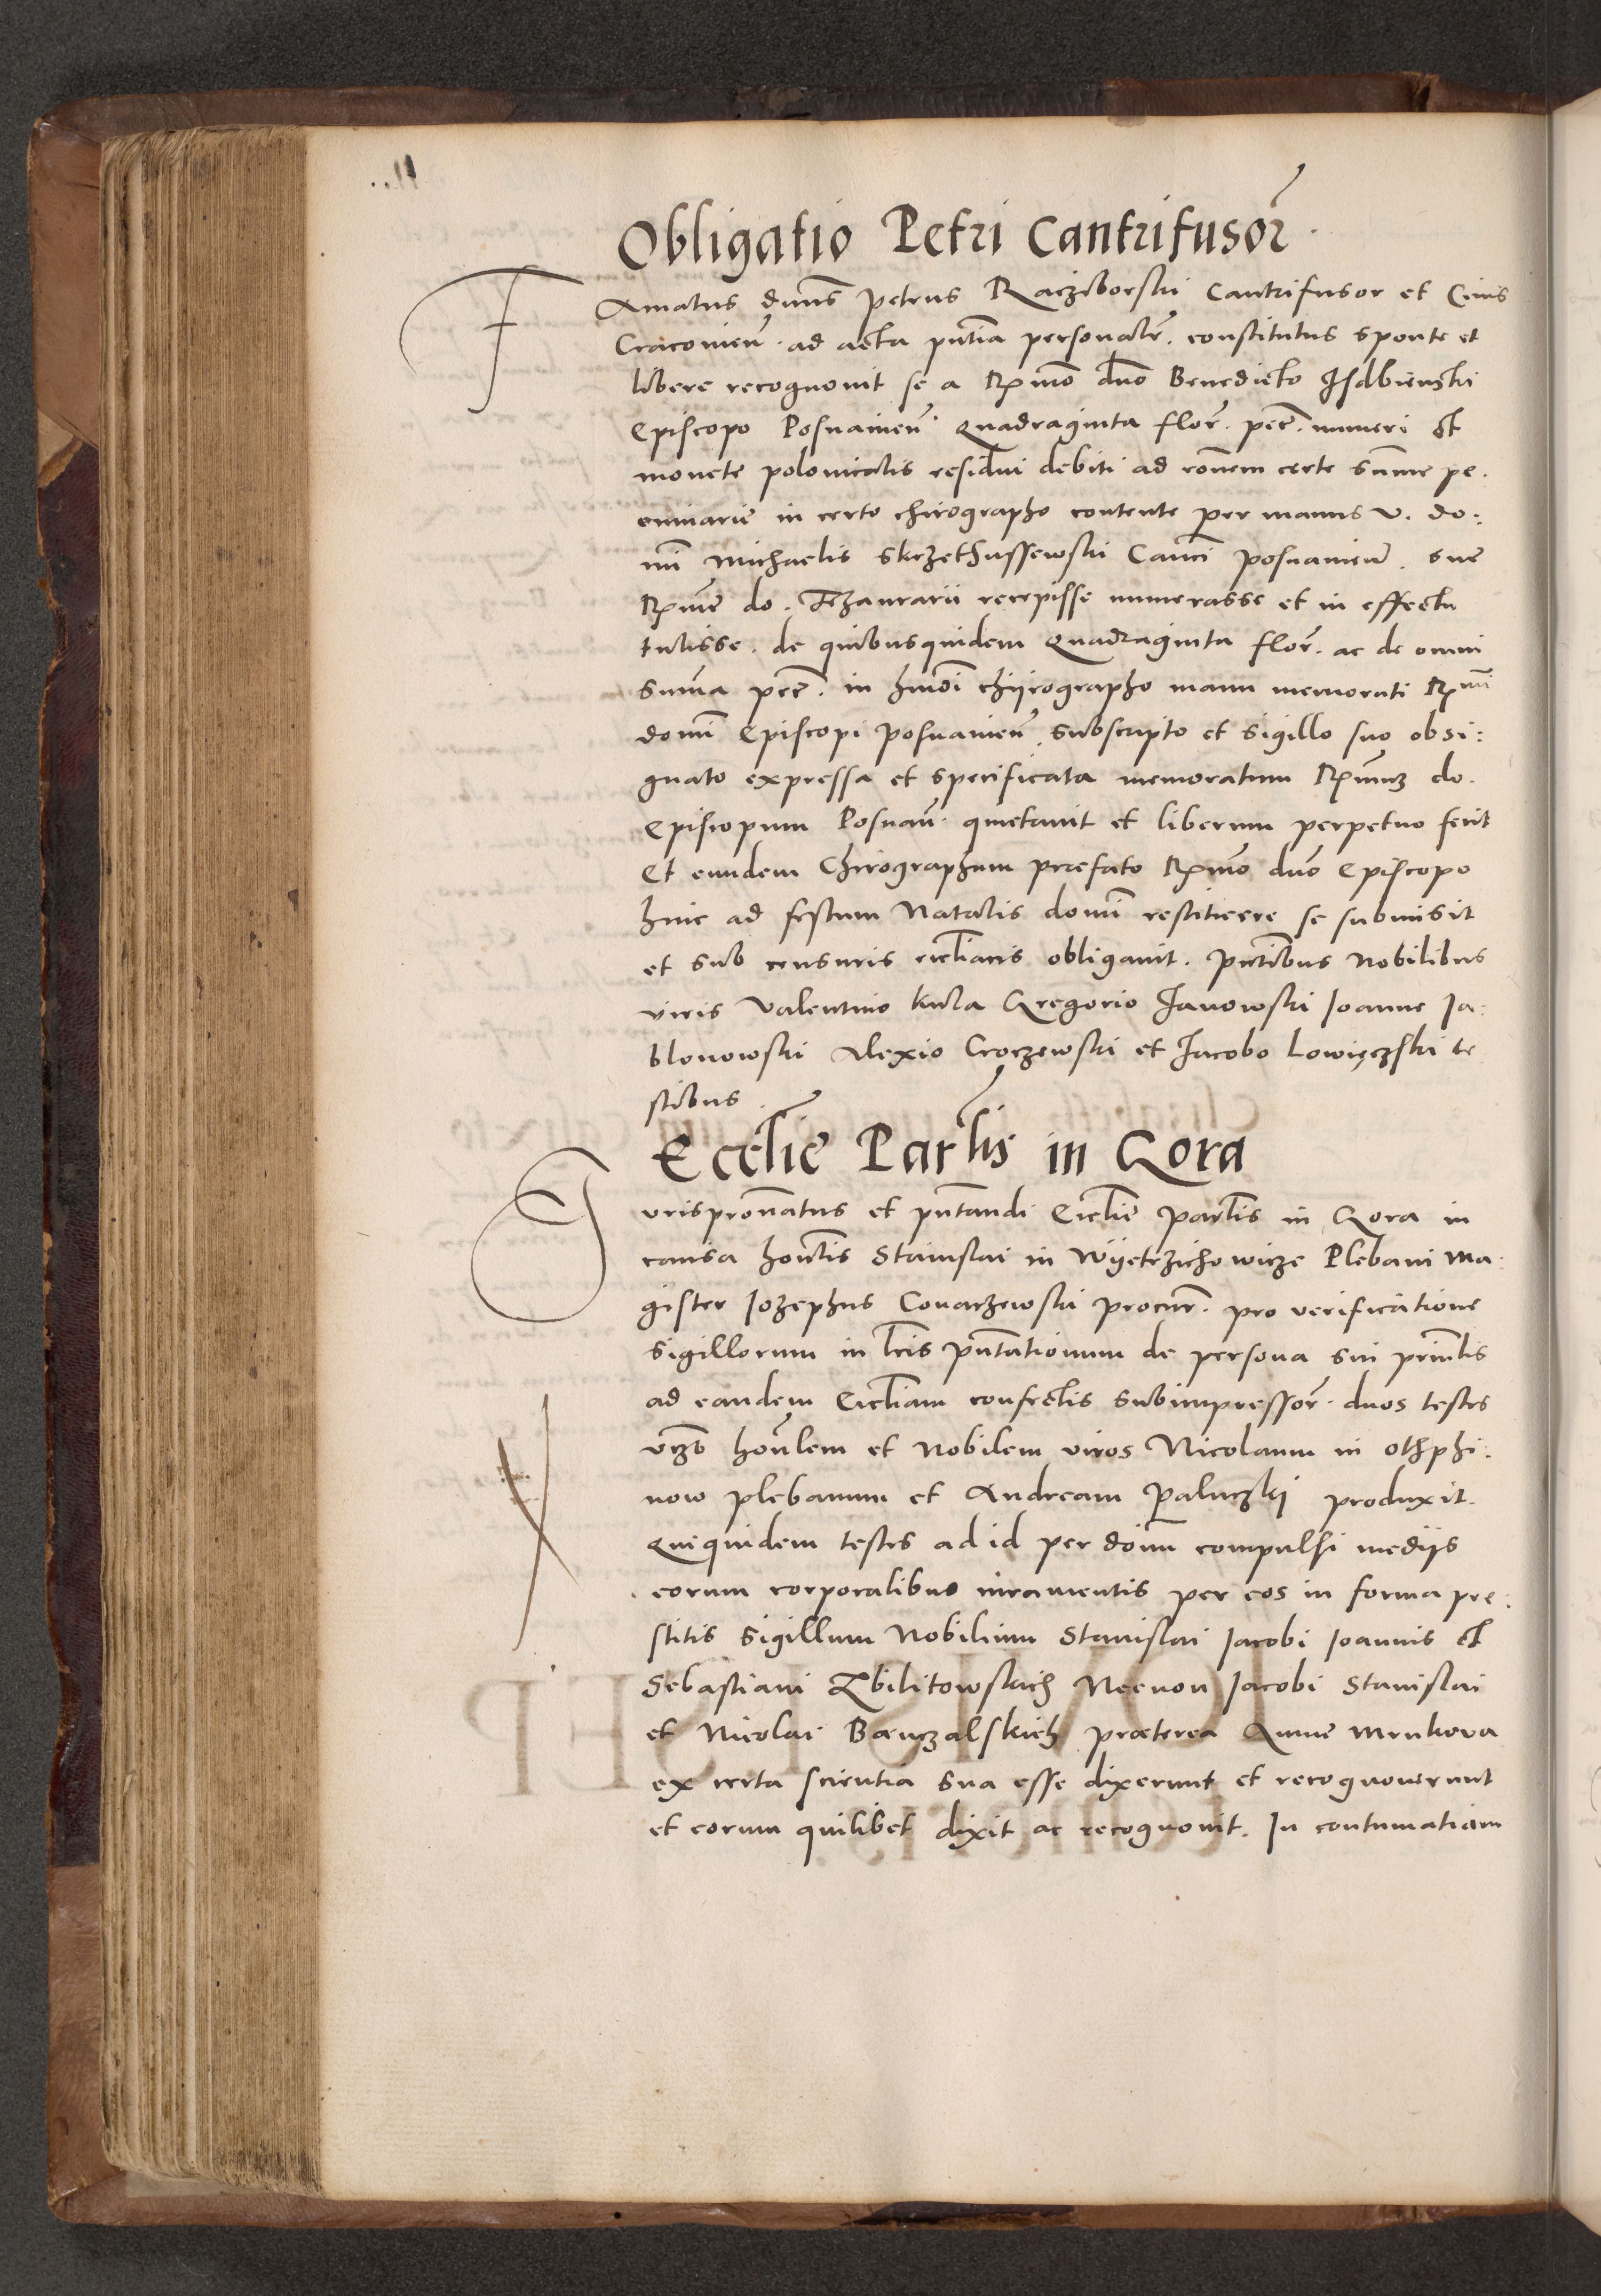 Obligatio Petri Cantrifusor̄
Famatus dn̄us Petrus Raczÿborski Cantrifusor et Civis
Cracovien̄. ad acta pn̄tia personalr̄. constitutus sponte et
libere recognovit se a Rp̄mo dn̄o Benedicto Isdbienski
Episcopo Posnanien̄ quadraginta flor̄. pec̄. numeri Et
monete polonicalis residui debiti ad ron̄em certe sūme pe.
cuniarie in certo chirographo contente per manus v. do:
mī Michaelis Skrzethussewski Canci Posnanien̄. sue
Rp̄me do. Tezaurarii recepisse numerasse et in effectu
tulisse. de quibusquidem quadraginta flor̄. ac de omni
suma pec̄. in hmōi chÿrographo manu memorati Rp̄mi
domī Episcopi Posnanien̄. subscripto et sigillo suo obsi:
gnato expressa et specificata memoratum Rp̄mu̅ do.
Episcopum Posnan̄. quietavit et liberum perpetuo fecit
Et eundem Chirographum præfato Rp̄mo dn̄o Episcopo
hinc ad festum Natalis domī restituere se submisit
et sub censuris eccl̄iacis obligavit. pn̄tibus Nobilibus
viris Valentino Kula Gregorio Janowski Ioanne Ja:
blonowski Alexio Croczewski et Jacobo Lowięczski te
stibus.
Eccl̄ie Par̄lis in Gora
Jurispron̄atus et pn̄tandi Eccl̄ie par̄lis in Gora in
causa hon̄lis Stanislai in Wÿetrzichowicze Plebani Ma.
gister Iozephus Conarzewski procur̄. pro verificatione
sigillorum in l̄ris pn̄tationum de persona sui prin̄lis
ad eandem Eccl̄iam confectis subimpressor̄. duos testes
vz̄ hon̄lem et Nobilem viros Nicolaum in Othphi:
now plebanum et Andream Paluczkj produxit.
Quiquidem testes ad id per don̄m compulsi medijs
eorum corporalibus iuramentis per eos in forma pre:
stitis sigillum Nobilium Stanislai Jacobi Joannis et
Sebastiani Zbilitowskich Necnon Jacobi Stanislai
et Nicolai Bænczalskich præterea Anne Mrukova
ex certa scientia sua esse dixerunt et recognoverunt
et eorum quilibet dixit ac recognovit. In contumatiam